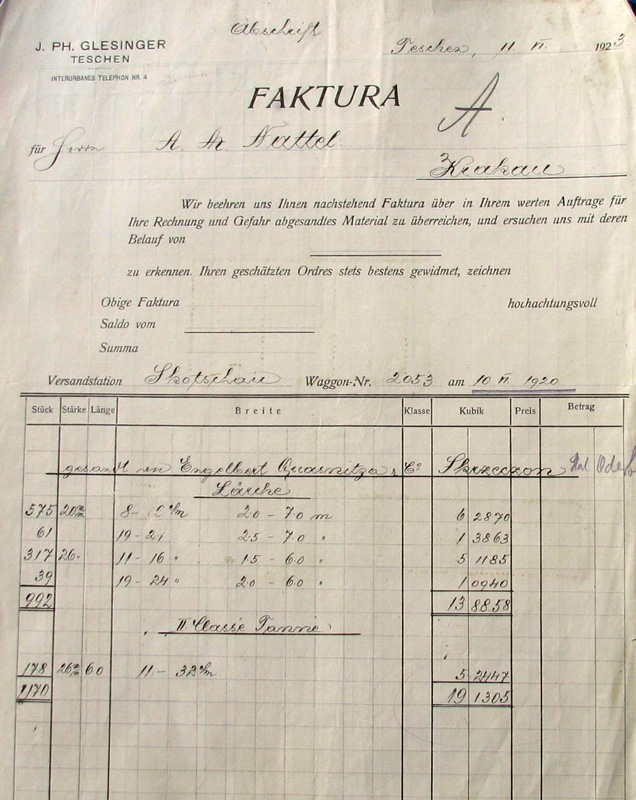 Abschrift
J. PH. GLESINGER
TESCHEN
INTERURBANES TELEPHON NR. 4
Teschen, 11. VI. 1923
FAKTURA
A.
für Herrn A. M. Nattel
Krakau
Wir beehren uns Ihnen nachstehend Faktura über in Ihrem werten Auftrage für
Ihre Rechnung und Gefahr abgesandtes Material zu überreichen, und ersuchen uns mit deren
Belauf von
zu erkennen. Ihren geschätzten Ordres stets bestens gewidmet, zeichnen
Obige Faktura hochachtungsvoll
Saldo vom
Summa
Versandstation Skotschau Waggon-Nr. 2053 am 10. VI. 1920
Stück Stärke Länge Breite Klasse Kubik Preis Betrag
gesandt an Engelbert & Co Skrzeczon
Lärche
575 20 m/m 8- c/m 20 - 70 m 6 2870
61 19-21 25 - 70 " 1 3863
317 26 " 11 - 16 " 15 - 60 " 5 1185
39 19 - 24 " 20 - 60 " 1 0940
992 13 8858
II Classe Tanne
178 26 m/m 60 11 - 32 c/m 5 2447
1170 19 1305